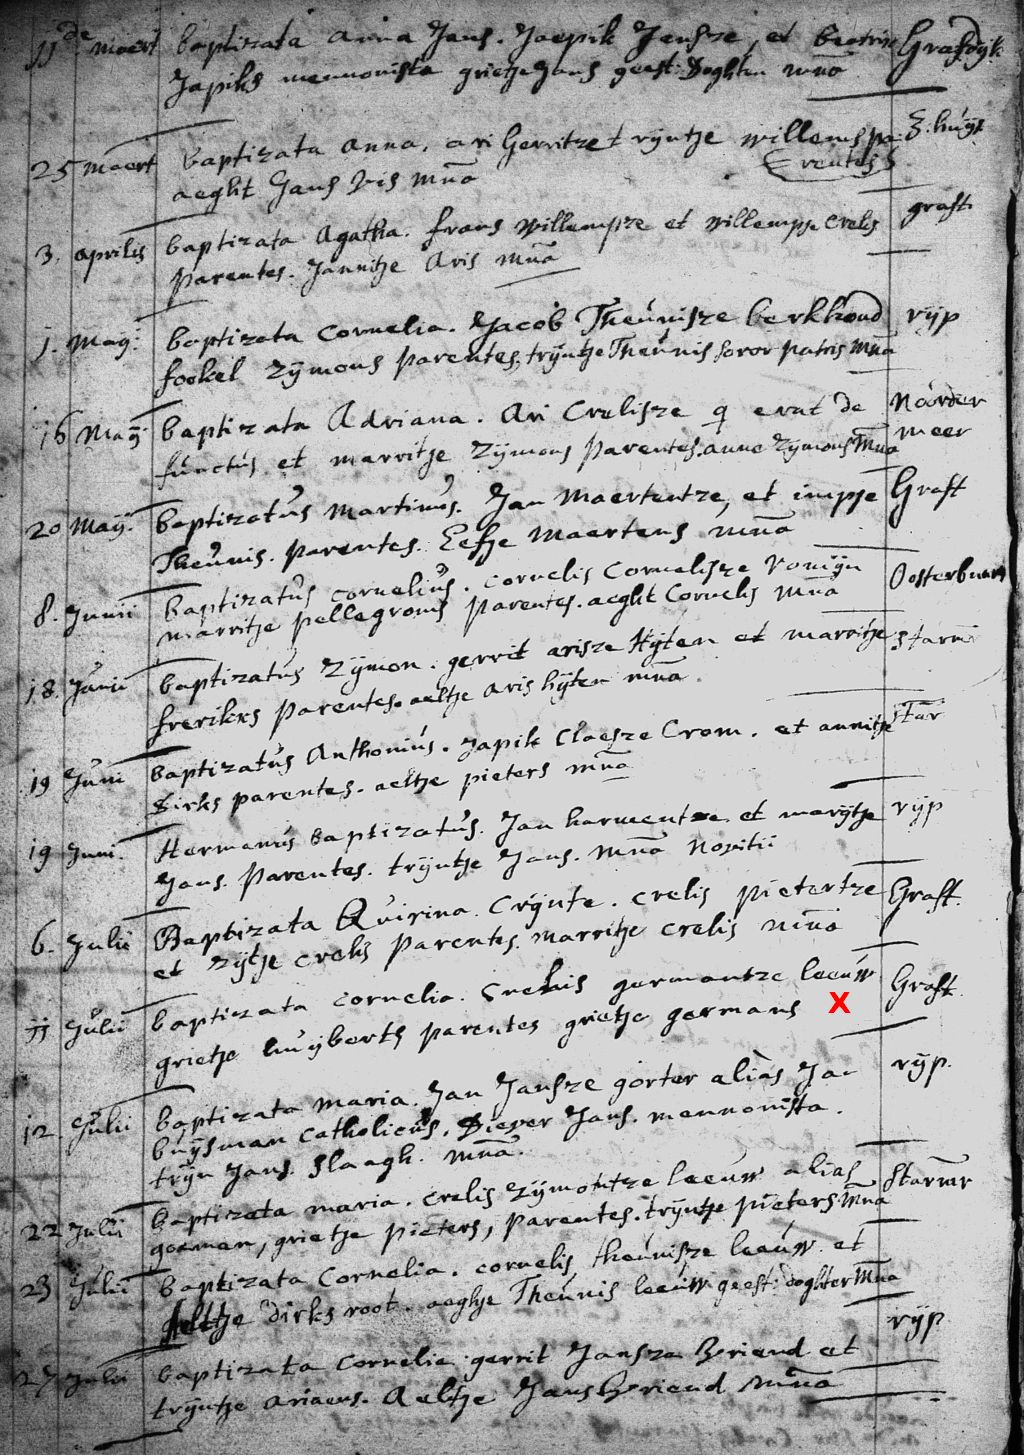 11de maert baptizata anna Jans. Jaepik Jansze, et Beatrix Grafdÿk
Japiks mennonista grietje Jans geest: Doghter mna
25 maert baptizata anna. ari Gerritze et trÿntje willems pa- Z. huÿs
rentes
aeght Jans Vis mna
3. aprilis baptizata Agatha. frans willempze et willempje crelis graft
parentes. Jannitje Aris mna
1. Maÿ: baptizata cornelia. Jacob Theunisze berkhoud rÿp
fookel Zÿmons parentes, trÿntje Theunis soror patris mna
16 Maÿ baptizata Adriana. Ari Crelisze q erat de Noorder
functus et marritje Zÿmons parentes. anna Zÿmons mna meer
20 Maÿ: baptizatus Martinus. Jan Maertentze, et impje Graft
Theunis. parentes. Eefje Maertens mna
8. Junii baptizatus cornelius. cornelis Cornelisze Oosterbuert
marritje pellegroms parentes. aeght Cornelis mna
18. Junii baptizatus Zÿmon. gerrit arisze Hÿten et marritje starm
frerikxs parentes. aeltje aris hÿten mna.
19 Juni baptizatus Anthonius. Japik Claesze Crom. et annitje star
Dirks parentes. aeltje pieters mna
19 Juni. Hermanus baptizatus. Jan harmentze et marÿtje rÿp
Jans. parentes. trÿntje Jans. mna
6. Julii Baptizata Quirina. Crÿnte. crelis pietertze Graft.
et Zÿtje crelis parentes. marritje crelis mna
11 Julii baptizata cornelia. Crelis germantze leeuw Graft.
grietje huÿberts parentes grietje germans X
12. Julii baptizata maria. Jan Jansze gorter aliàs Ja- rÿp.
buÿsman catholicus. Diever Jans. mennonista.
trÿn Jans. slaagh. mna.
22 Julii baptizata maria. crelis Zÿmontze leeuw alias starmr
goeman, grietje pieters, parentes. trÿntje pieters mna
23 Julii baptizata Cornelia. cornelis theunisze leeuw et
Aeltje dirks root. aeghje Theunis leeuw geest: doghter mna
rÿp
27 Julii baptizata Cornelia gerrit Jansze Briend et
trÿntje Ariaens. Aeltje Jans Briend mna